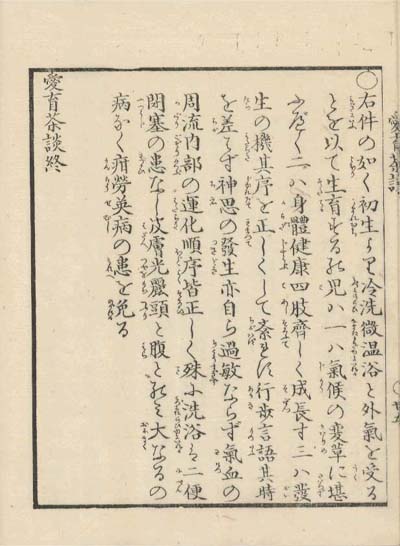 ○右件の如く初生より冷洗微温浴と外氣を受る
ことを以て生育する時ハ児か一ハ氣候の変草に堪
ふべく二ハ身體健康四肢齊しく成長す三ハ發
生の機其序を正しくして紊れず行歩言語其時
を差へず神思の發生亦自ら過敏ならず氣血の
周流内部の運化順序皆正しく殊に洗浴は二便
閉塞の患なし皮膚光麗頭と腹と のミ大なるの
病なく疳勞英病の患を免る
愛育茶談終
愛育茶談
廿五